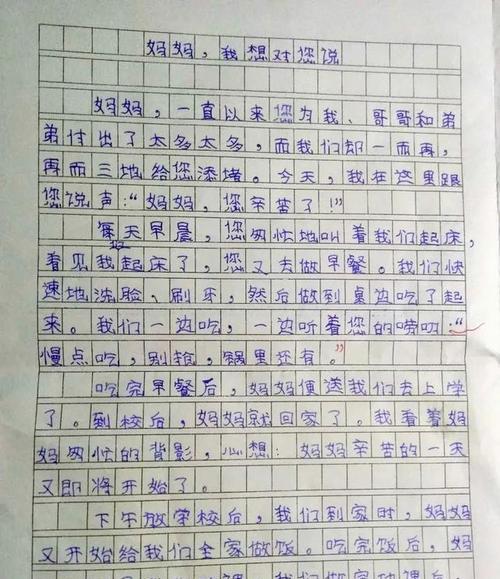 妈妈，我想对您说
妈妈，一直以来您为我、哥哥和弟
弟付出了太多太多，而我们却一而再，
再而三地给您添堵。今天，我在这里跟
您说声：“妈妈，您辛苦了！”
每天早晨，您匆忙地叫着我们起床，
看见我起床了，您又去做早餐。我们快
速地洗脸、刷牙，然后做到桌边吃了起
来。我们一边吃，一边听着您的唠叨：“
慢点吃，别抢，锅里还有。”
吃完早餐后，妈妈便送我们去上学
了。到校后，妈妈就回家了。我看着妈
妈匆忙的背影，心想：妈妈辛苦的一天
又即将开始了。
下午放学校后，我们到家时，妈妈
又开始给我们全家做饭。吃完饭后，妈